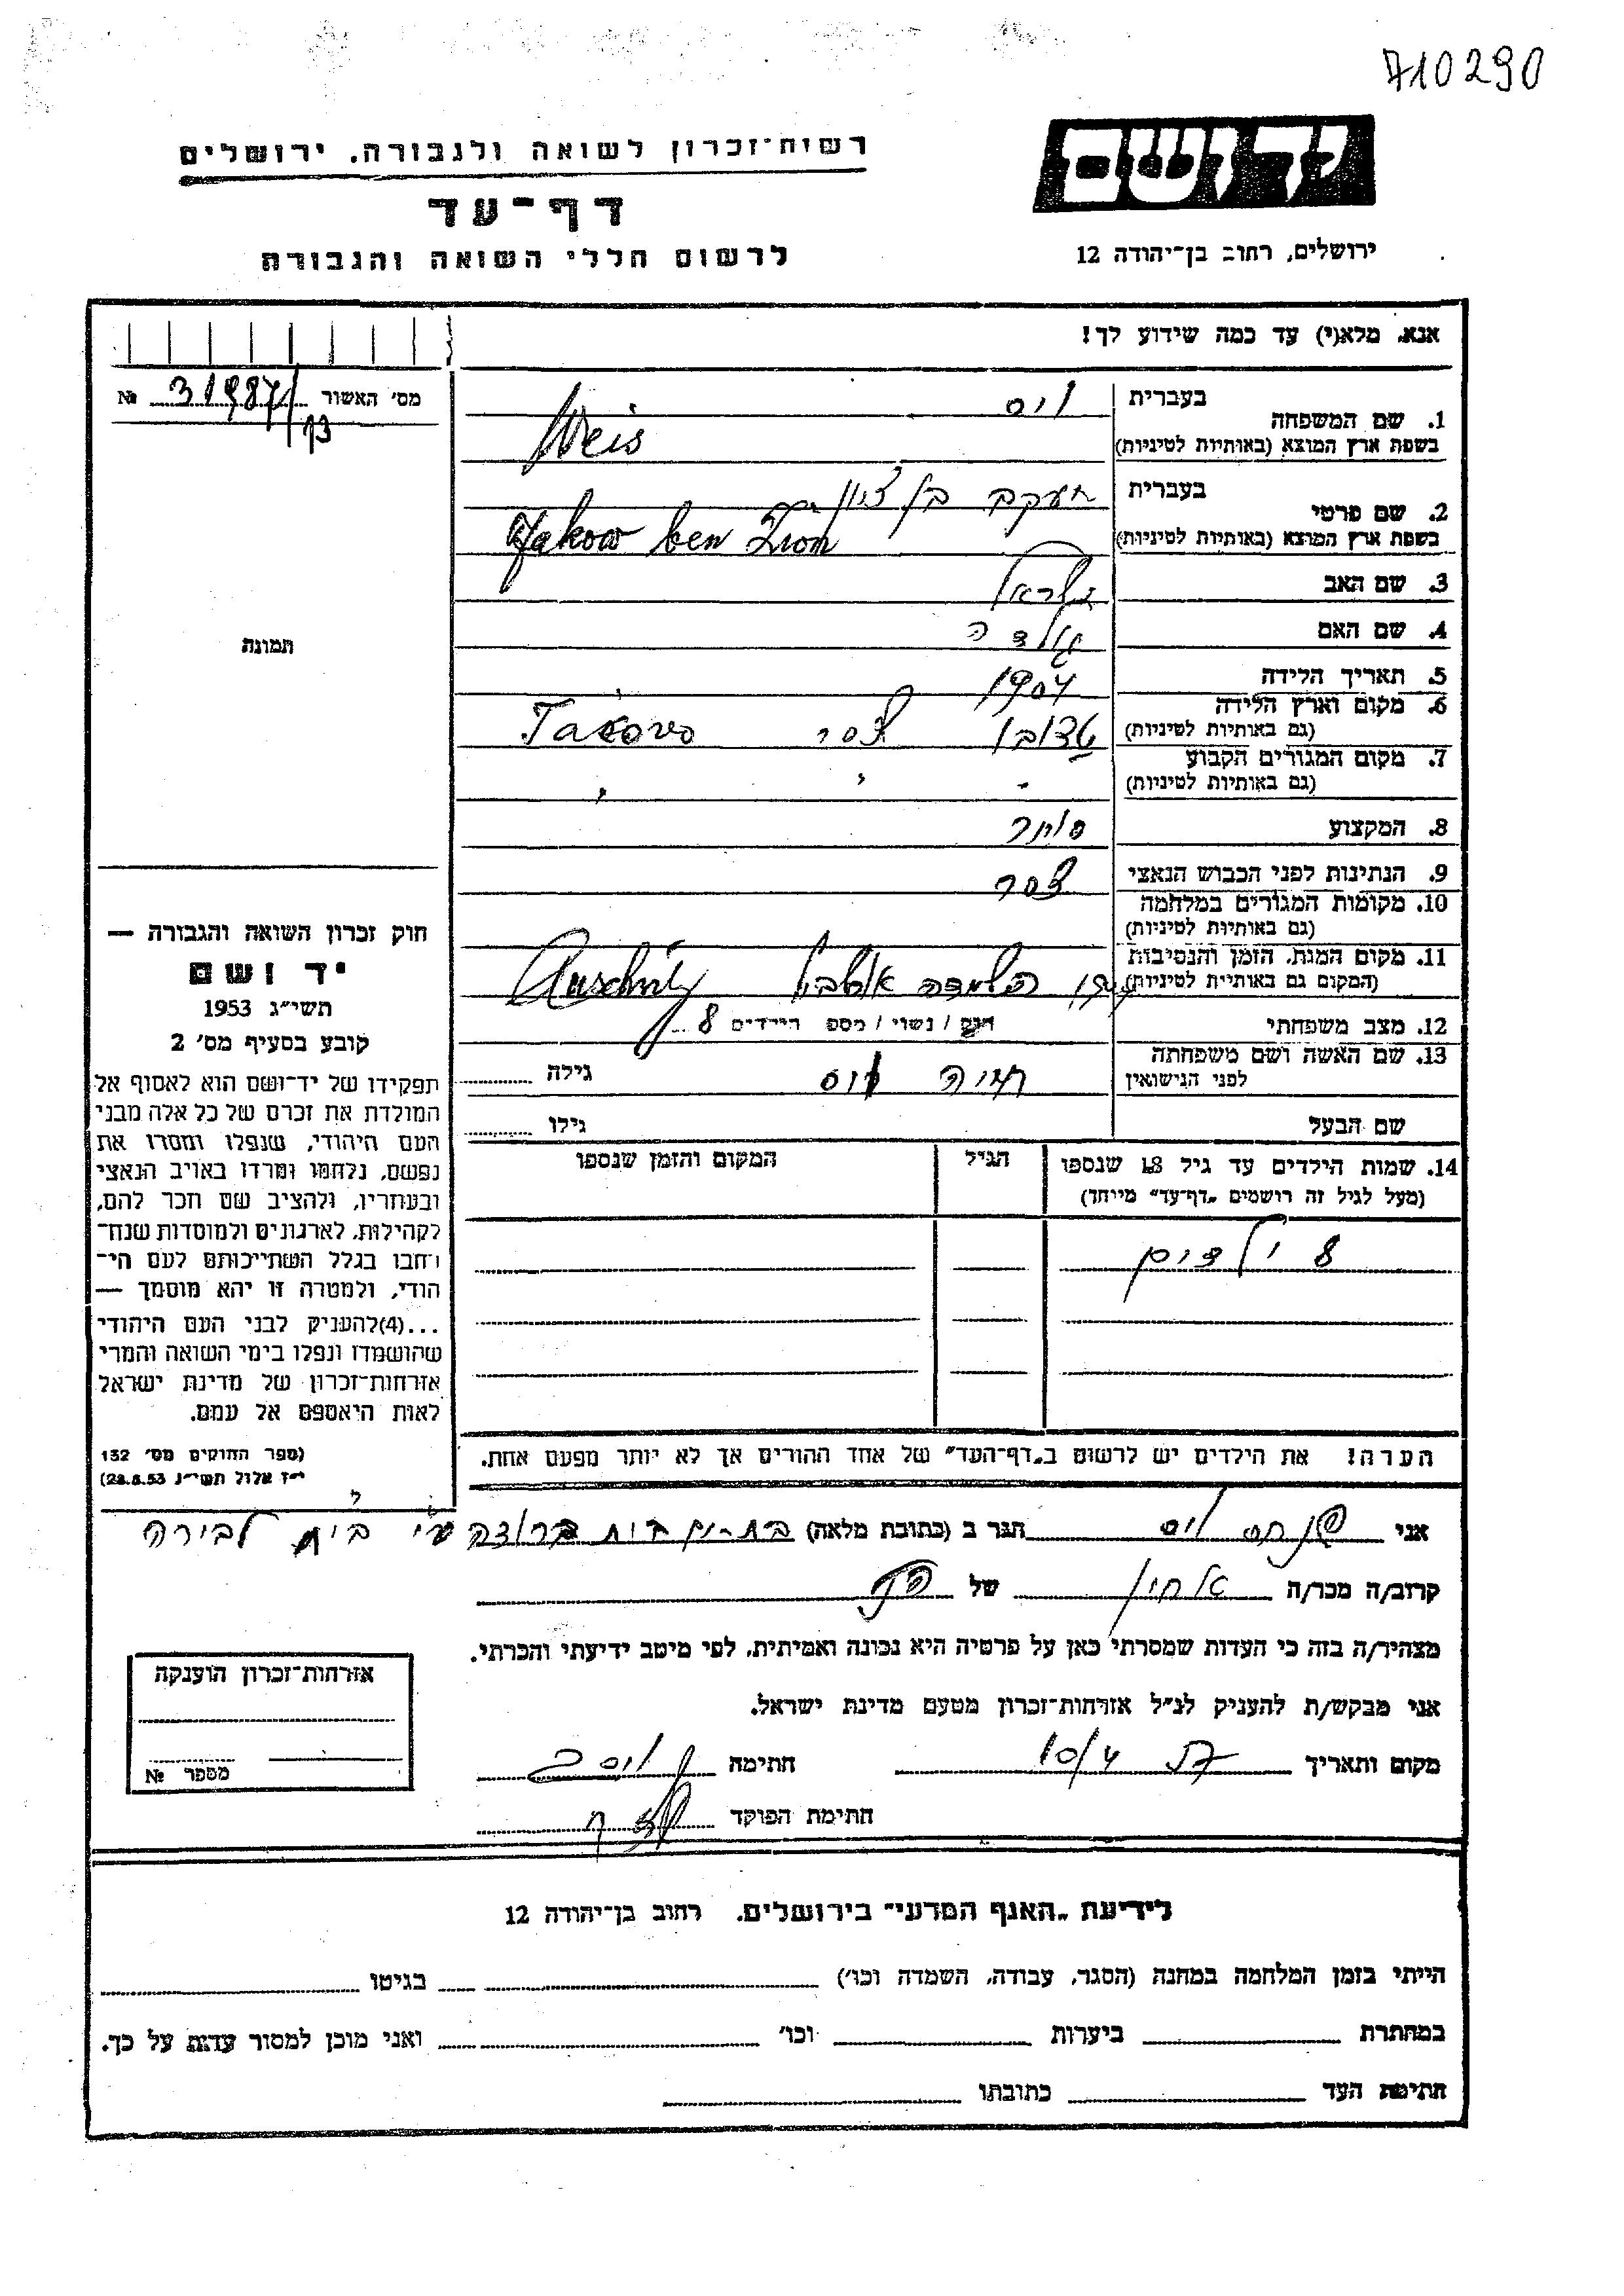 710290
יד ושם
רשות־זכרון לשואה ולגבורה, ירושלים
דף־עד
לרשום חללי השואה והגבורה
ירושלים, רחוב בן־יהודה 12
אנא, מלא(י) עד כמה שידוע לך!
מס' האשור № 31987/
1. שם המשפחה
בעברית ויס
בשפת ארץ המוצא (באותיות לטיניות) Weis
2. שם פרטי
בעברית יעקב בן ציון
בשפת ארץ המוצא (באותיות לטיניות) Jakow ben Zion
3. שם האב ישראל
4. שם האם גולדה
5. תאריך הלידה 1904
6. מקום וארץ הלידה
(גם באותיות לטיניות)
7. מקום המגורים הקבוע
(גם באותיות לטיניות)
8. המקצוע סוחר
9. הנתינות לפני הכבוש הנאצי
10. מקומות המגורים במלחמה
(גם באותיות לטיניות)
11. מקום המות, הזמן והנסיבות
(המקום גם באותיות לטיניות)
12. מצב משפחתי רווק / נשוי / מספר הילדים 8
13. שם האשה ושם משפחתה
לפני הנישואין חיה ויס גילה
שם הבעל גילו
14. שמות הילדים עד גיל 18 שנספו
(מעל לגיל זה רושמים „דף־עד" מיוחד)
הגיל
המקום והזמן שנספו
8 ילדים
הערה! את הילדים יש לרשום ב„דף־העד" של אחד ההורים אך לא יותר מפעם אחת.
תמונה
חוק זכרון השואה והגבורה —
יד ושם
תשי״ג 1953
קובע בסעיף מס' 2
תפקידו של יד־ושם הוא לאסוף אל
המולדת את זכרם של כל אלה מבני
העם היהודי, שנפלו ומסרו את
נפשם, נלחמו ומרדו באויב הנאצי
ובעוזריו, ולהציב שם וזכר להם,
לקהילות, לארגונים ולמוסדות שנח־
רבו בגלל השתייכותם לעם הי־
הודי, ולמטרה זו יהא מוסמך —
...(4)להעניק לבני העם היהודי
שהושמדו ונפלו בימי השואה והמרי
אזרחות־זכרון של מדינת ישראל
לאות היאספם אל עמם.
(ספר החוקים מס' 132
י״ז אלול תשי״ג 28.8.53)
אני פנחס ויס הגר ב (כתובת מלאה) בת־ים
קרוב/ה מכר/ה של
מצהיר/ה בזה כי העדות שמסרתי כאן על פרטיה היא נכונה ואמיתית, לפי מיטב ידיעתי והכרתי.
אני מבקש/ת להעניק לנ״ל אזרחות־זכרון מטעם מדינת ישראל.
מקום ותאריך 10/4 חתימה
חתימת הפוקד
אזרחות־זכרון הוענקה
מספר №
לידיעת „האגף המדעי" בירושלים, רחוב בן־יהודה 12
הייתי בזמן המלחמה במחנה (הסגר, עבודה, השמדה וכו') בגיטו
במחתרת ביערות וכו' ואני מוכן למסור עדות על כך.
חתימת העד כתובתו